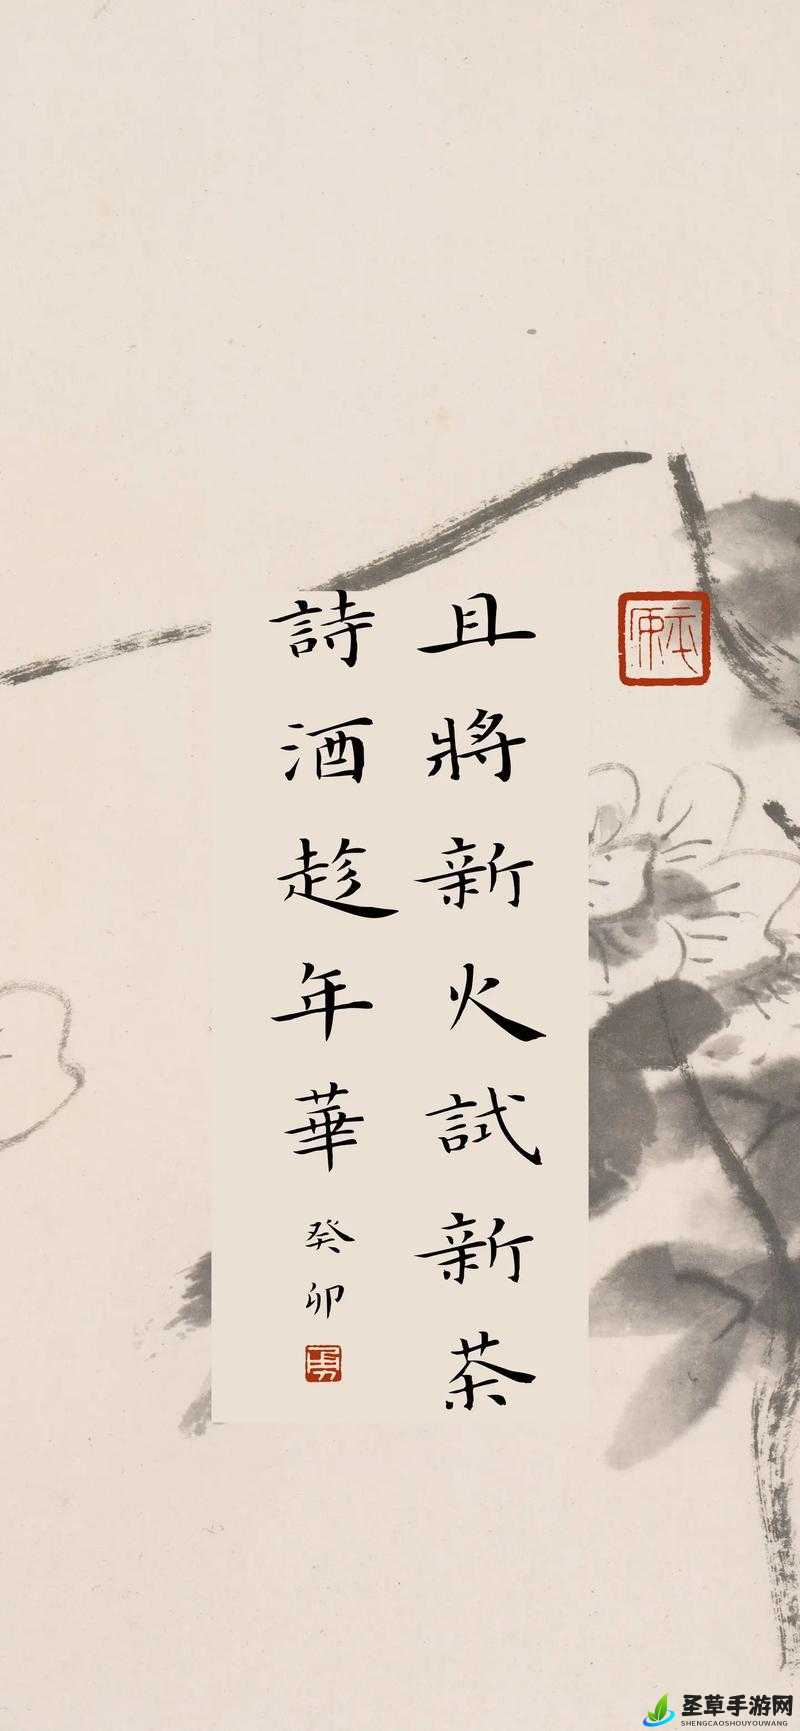 且將新火試新茶
詩酒趁年華
癸卯
圣草手游网
SHENGCAOSHOUYOUWANG